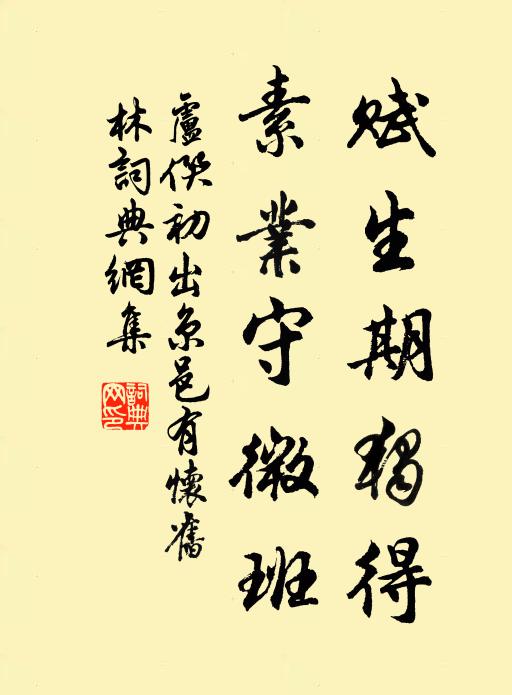 賦生期獨得
素業守微班
盧僎初出京邑有懷舊
林詞典網集
詞典网印